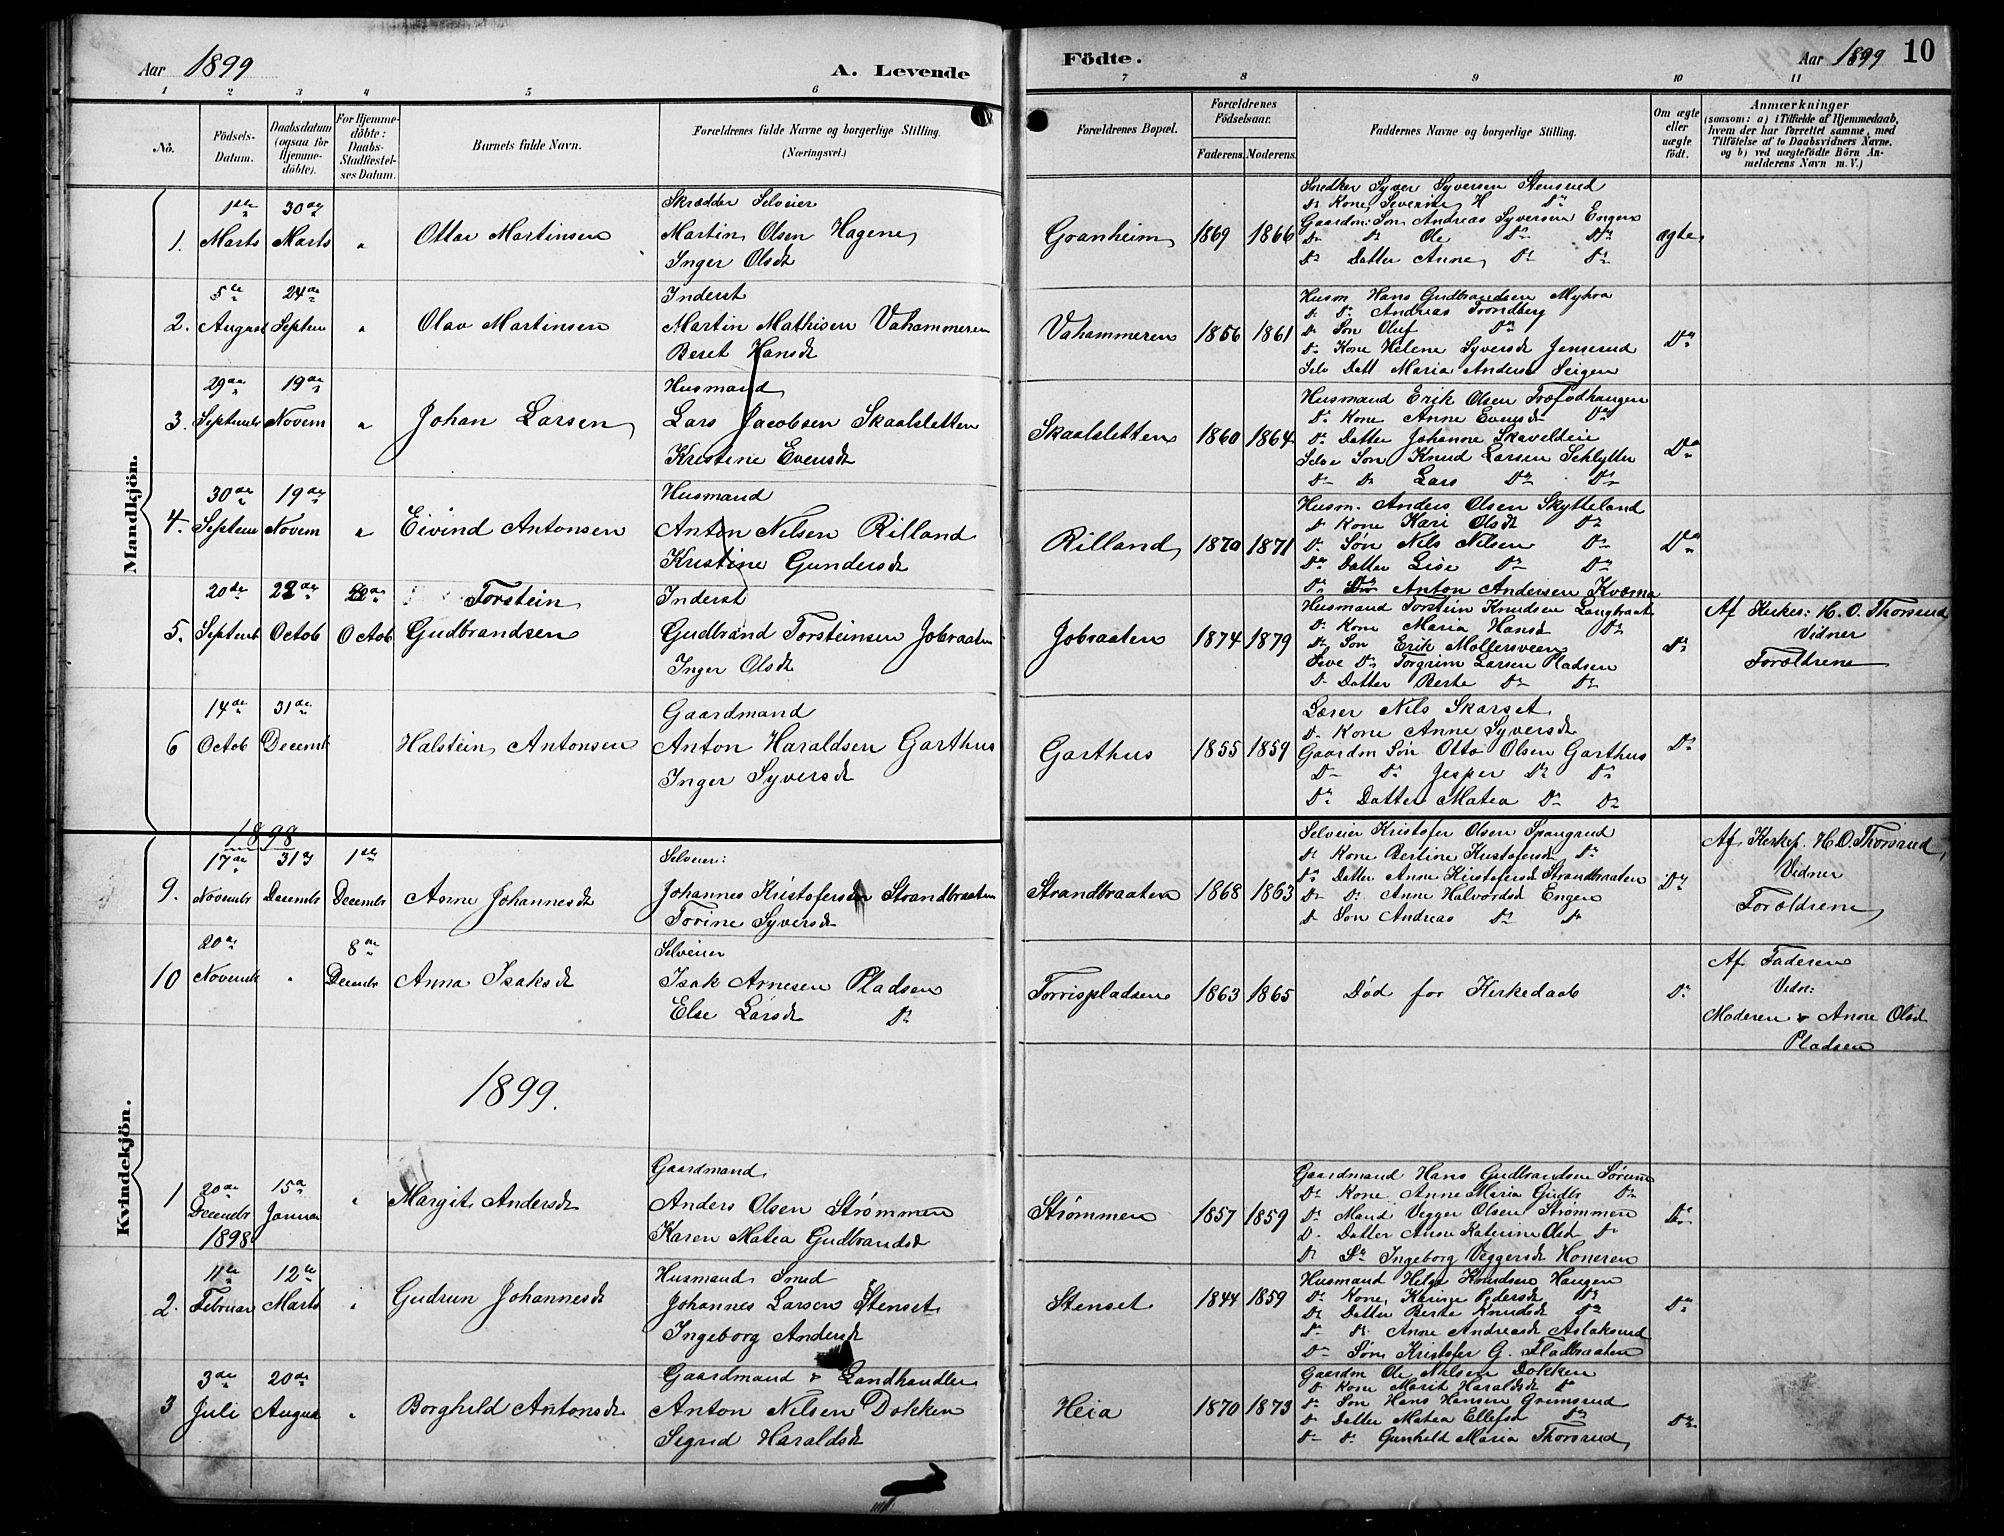 Aar 1899
A. Levende
Födte.
Aar 1899
10
1 2 3 4 5 6 7 8 9 10 11
No.
Födsels-Datum.
Daabsdatum (ogsaa for Hjemme-döbte).
For Hjemme-döbte: Daabs-Stadfæstel-ses Datum.
Barnets fulde Navn.
Forældrenes fulde Navne og borgerlige Stilling.
(Næringsvei.)
Forældrenes Bopæl.
Forældrenes Födselsaar.
Faderens. Moderens.
Faddernes Navne og borgerlige Stilling.
Om ægte eller uægte födt.
Anmærkninger
(saasom: a) i Tilfælde af Hjemmedaab,
hvem der har forrettet samme, med
Tilföielse af to Daabsvidners Navne,
og b) ved uægtefödte Börn An-
melderens Navn m. V.)
Mandkjön.
1. 1ste Marts 30de Marts " Ottar Martinsen
Skrædder Selveier
Martin Olsen Hagene
Inger Olsdt
Granheim 1869 1866
Snedker Syver Syversen Stensrud
Do Kone Severine H Do
Gaardm: Søn Andreas Syversen Engen
Do Do Ole Do Do
Do Datter Anne Do Do
ægte
2. 5te August 24de Septem " Olav Martinsen
Inderst
Martin Mathisen Vahammeren
Beret Hansdt
Vahammeren 1856 1861
Husm. Hans Gudbrandsen Myhra
Do Do Andreas Trondberg
Do Søn Oluf Do
Do Kone Helene Syversdt Jenserud
Selv Datt Maria Anders Seigen
Do
3. 29de Septembr 19de Novem " Johan Larsen
Husmand
Lars Jacobsen Skaalsletten
Kristine Evensdt
Skaalsletten 1860 1864
Husmand Erik Olsen Træfodhaugen
Do Kone Anne Evensdt Do
Do Datter Johanne Skaveldeie
Selve Søn Knud Larsen Schlytter
Do Do Lars Do Do
Do
4. 30de Septem 19de Novem " Eivind Antonsen
Husmand
Anton Nilsen Rilland
Kristine Gundersdt
Rilland 1870 1871
Husm. Anders Olsen Skytteland
Do Kone Kari Olsdt Do
Do Søn Nils Nilsen Do
Do Datter Lise Do Do
Do Do Anton Andersen Kværna
Do
5. 20de Septemb 22de Octob 22de Octob Torstein
Gudbrandsen
Inderst
Gudbrand Torsteinsen Jobraaten
Inger Olsdt
Jobraaten 1874 1879
Husmand Torstein Knudsen Langbraat
Do Kone Maria Hansd Do
Do Søn Erik Møllersveen
Leve Do Torgrim Larsen Pladsen
Do Datter Berte Do Do
Do
Af Kirkes: H. O. Thorsrud
Vidner
Forældrene
6 14de Octob 31de Decemb Halstein Antonsen
Gaardmand
Anton Haraldsen Garthus
Inger Syversdt
Garthus 1855 1859
Lærer Nils Skarset
Do Kone Anne Syversdt
Gaardm Søn Otto Olsen Garthus
Do Do Jesper Do Do
Do Datter Matea Do Do
Do
Kvindekjön.
1898
9. 17de Novembr 31 Decembr 1ste Decembr Anne Johannesdt
Selveier:
Johannes Kristofersen Strandbraaten
Torine Syversdt
Strandbraaten 1868 1863
Selveier Kristofer Olsen Spangrud
Do Kone Bertine Kristofersdt Do
Do Datter Anne Kristofersdt Strandbraaten
Do Do Anne Halvorsdt Engen
Do Søn Andreas Do Do
Do
Af Kirkes. H. O. Thorsrud,
Vidner
Forældrene
10 20de Novemb " 8de Decembr Anna Isaksdt
Selveier
Isak Arnesen Pladsen
Else Larsdt Do
Torrispladsen 1863 1865
Død før Kirkedaab
Do
Af Faderen
Vidne:
Moderen & Anne Olsd
Pladsen
1899.
1 20de Decembr 1898 15de Januar " Margit Andersdt
Gaardmand
Anders Olsen Strømmen
Karen Matea Gudbrandsdt
Strømmen 1857 1859
Gaardmand Hans Gudbrandsen Sørum
Do Kone Anne Maria Gudbr Do
Do Mand Vegger Olsen Strømmen
Do Datter Anne Katerine Olsd Do
Do Do Ingeborg Veggersdt Honeren
Do
2. 11te Februar 12te Marts " Gudrun Johannesdt
Husmand Smed
Johannes Larsen Stenset
Ingeborg Andersdt
Stenset 1844 1859
Husmand Helge Knudsen Haugen
Do Kone Karine Pedersdt Do
Do Datter Berte Knudsdt Do
Do Do Anne Andreasdt Aslaksrud
Do Søn Kristofer G. Fladbraaten
Do
3 3de Juli 20de August " Borghild Antonsdt
Gaardmand & Landhandler
Anton Nilsen Dokken
Sigrid Haraldsdt
Heia 1870 1873
Gaardm Ole Nilsen Dokken
Do Kone Marit Haraldsdt Do
Do Søn Hans Hansen Grimsrud
Do Datter Matea Ellefsd Do
Do Do Gunhild Maria Thorsrud
Do